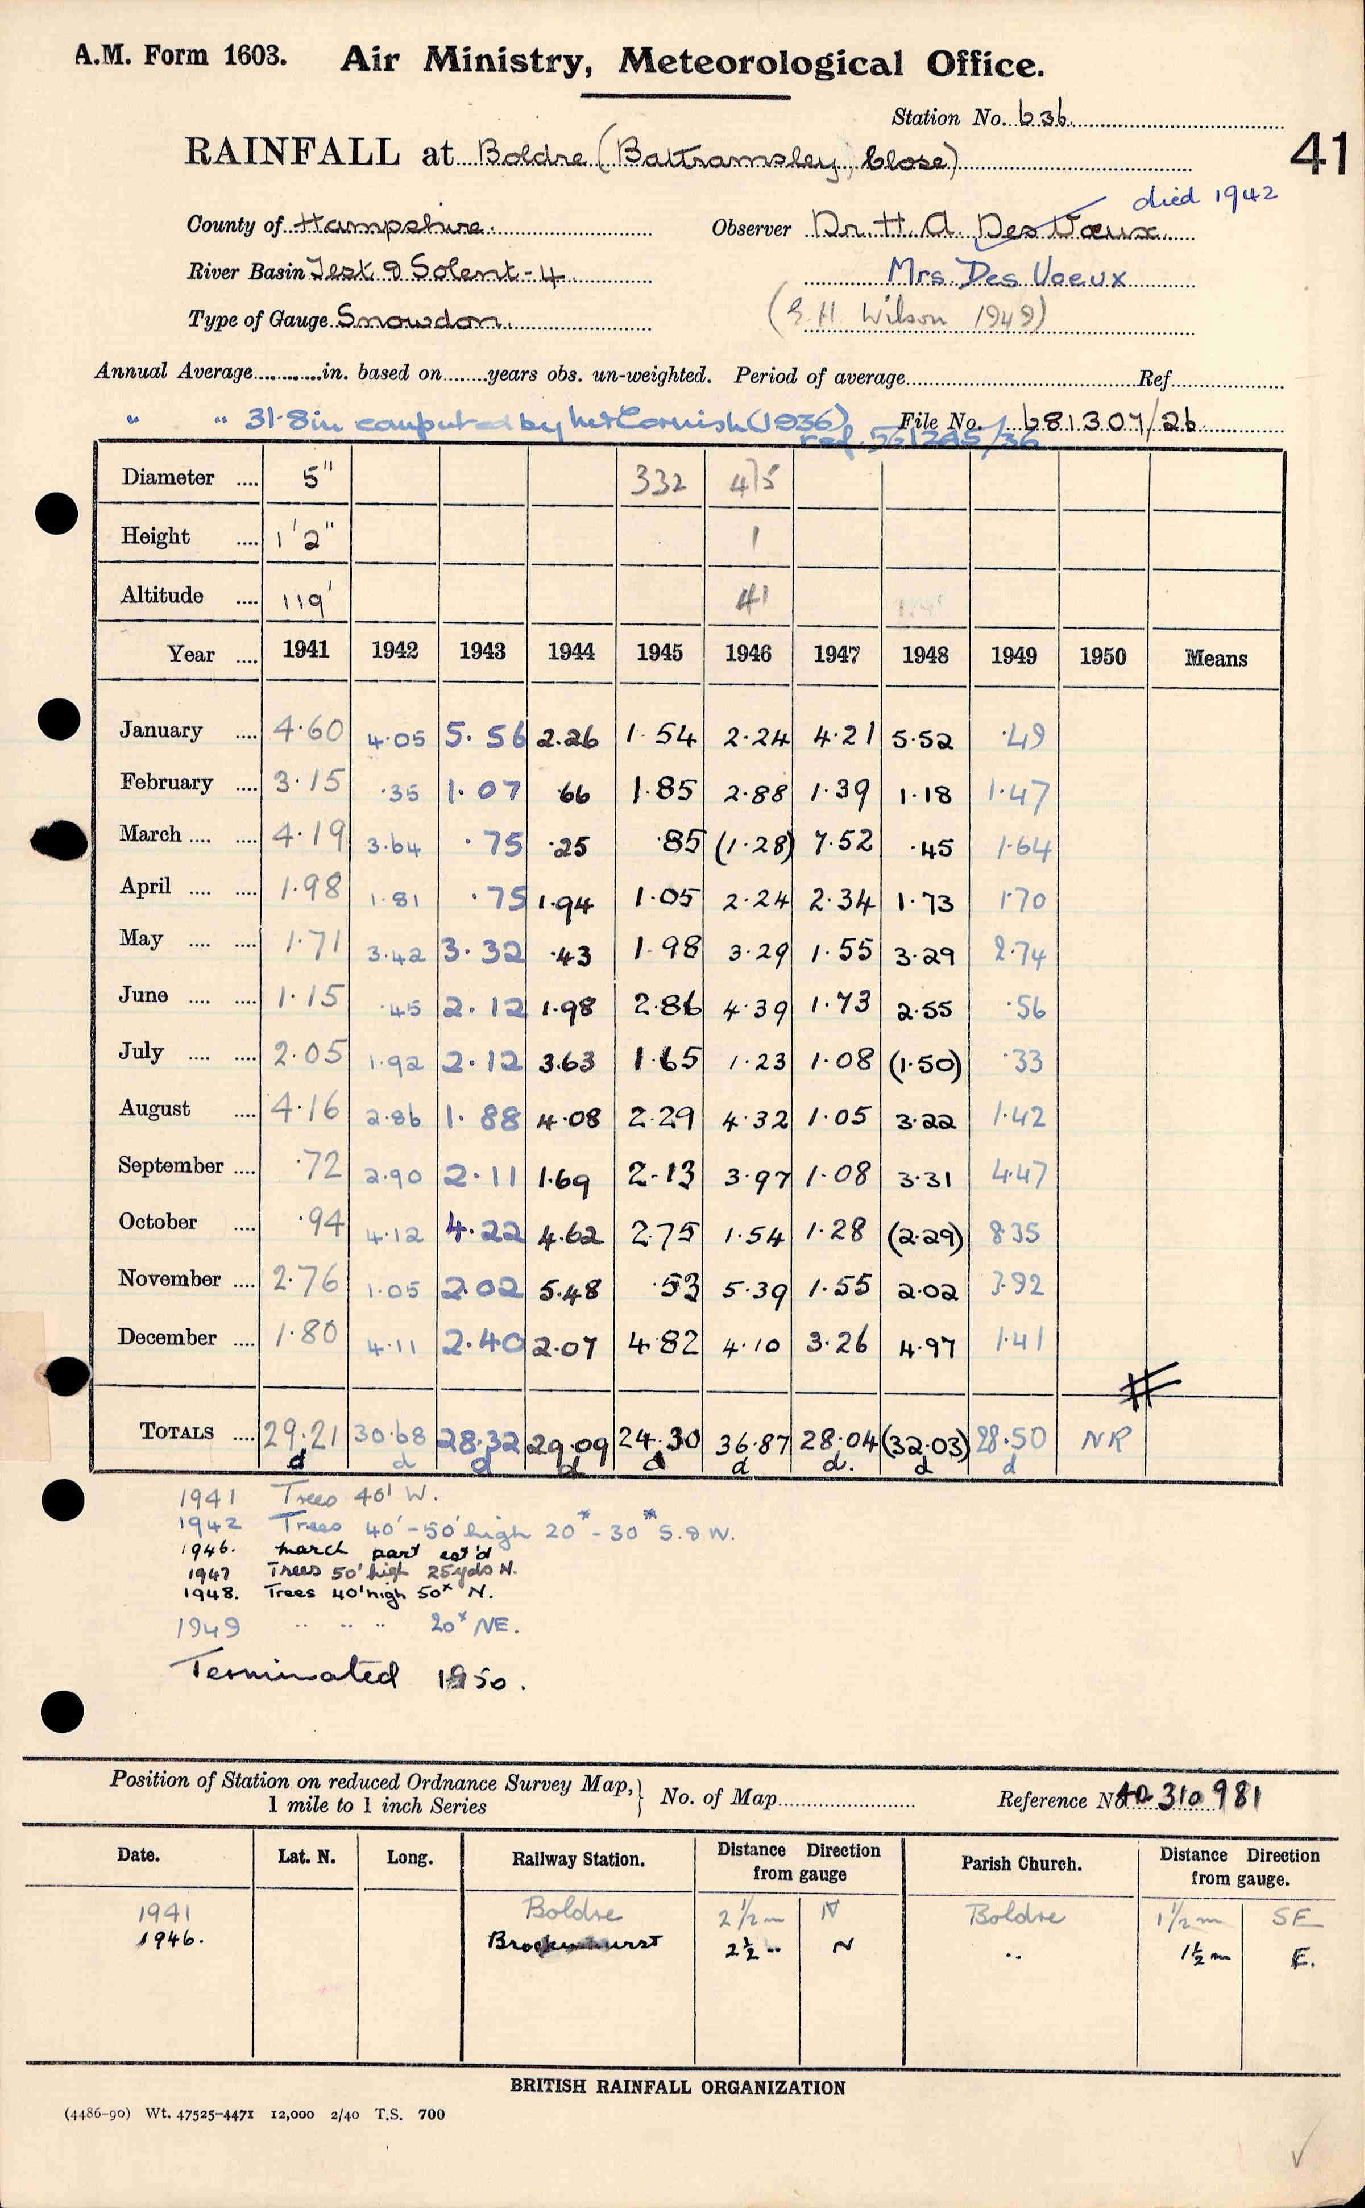 A.M. Form 1603. Air Ministry, Meteorological Office.
Station No. 636.
RAINFALL at Boldre (Battramsley Close)
41
died 1942
County of Hampshire. Observer Dr. H. A. Des Voeux
River Basin Test & Solent - 4 Mrs Des Voeux
Type of Gauge Snowdon. (E. H. Wilson 1949)
Annual Average............in. based on........years obs. un-weighted. Period of average.................... Ref....................
" " 31·8in computed by Cornish (1936), File No. 681307/26
ref. 561285/36
Diameter .... 5" 332 475
Height .... 1'2" 1
Altitude .... 119' 41
Year .... 1941 1942 1943 1944 1945 1946 1947 1948 1949 1950 Means
January .... 4·60 4·05 5·56 2.26 1·54 2·24 4·21 5·52 ·49
February .... 3·15 ·35 1·07 ·66 1·85 2·88 1·39 1·18 1·47
March .... .... 4·19 3·64 ·75 ·25 ·85 (1·28) 7·52 ·45 1·64
April .... .... 1·98 1·81 ·75 1·94 1·05 2·24 2·34 1·73 1·70
May .... .... 1·71 3·42 3·32 ·43 1·98 3·29 1·55 3·29 2·74
June .... .... 1·15 ·45 2·12 1·98 2·86 4·39 1·73 2·55 ·56
July .... .... 2·05 1·92 2·12 3·63 1·65 1·23 1·08 (1·50) ·33
August .... 4·16 2·86 1·88 4·08 2·29 4·32 1·05 3·22 1·42
September .... ·72 2·90 2·11 1·69 2·13 3·97 1·08 3·31 4·47
October .... ·94 4·12 4·22 4·62 2·75 1·54 1·28 (2·29) 8·35
November .... 2·76 1·05 2·02 5·48 ·53 5·39 1·55 2·02 3·92
December .... 1·80 4·11 2·40 2·07 4·82 4·10 3·26 4·97 1·41
TOTALS .... 29·21 30·68 28·32 29·09 24·30 36·87 28·04 (32·03) 28·50 NR
d d d d d d d. d d
1941 Trees 40' W.
1942 Trees 40'-50' high 20x - 30x S. & W.
1946. March part est'd
1947 Trees 50' high 25yds N.
1948. Trees 40' high 50x N.
1949 .. .. .. 20x NE.
Terminated 1950.
Position of Station on reduced Ordnance Survey Map, 1 mile to 1 inch Series } No. of Map.................... Reference No 40 310 981
Date. Lat. N. Long. Railway Station. Distance Direction from gauge Parish Church. Distance Direction from gauge.
1941 Boldre 2 1/2 m N Boldre 1 1/2 m SE
1946. Brockenhurst 2½ .. N .. 1½ m E.
BRITISH RAINFALL ORGANIZATION
(4486-90) Wt. 47525-4471 12,000 2/40 T.S. 700